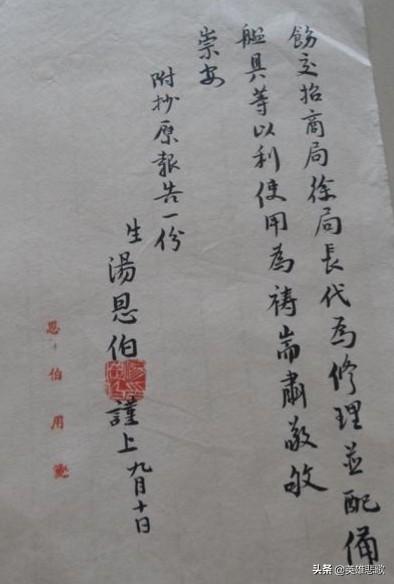 飭交招商局徐局長代為修理並配備
艦具等以利使用為禱耑肅敬
崇安
附抄原報告一份
生湯恩伯謹上九月十日
恩伯用箋
头条 @英雄悲歌